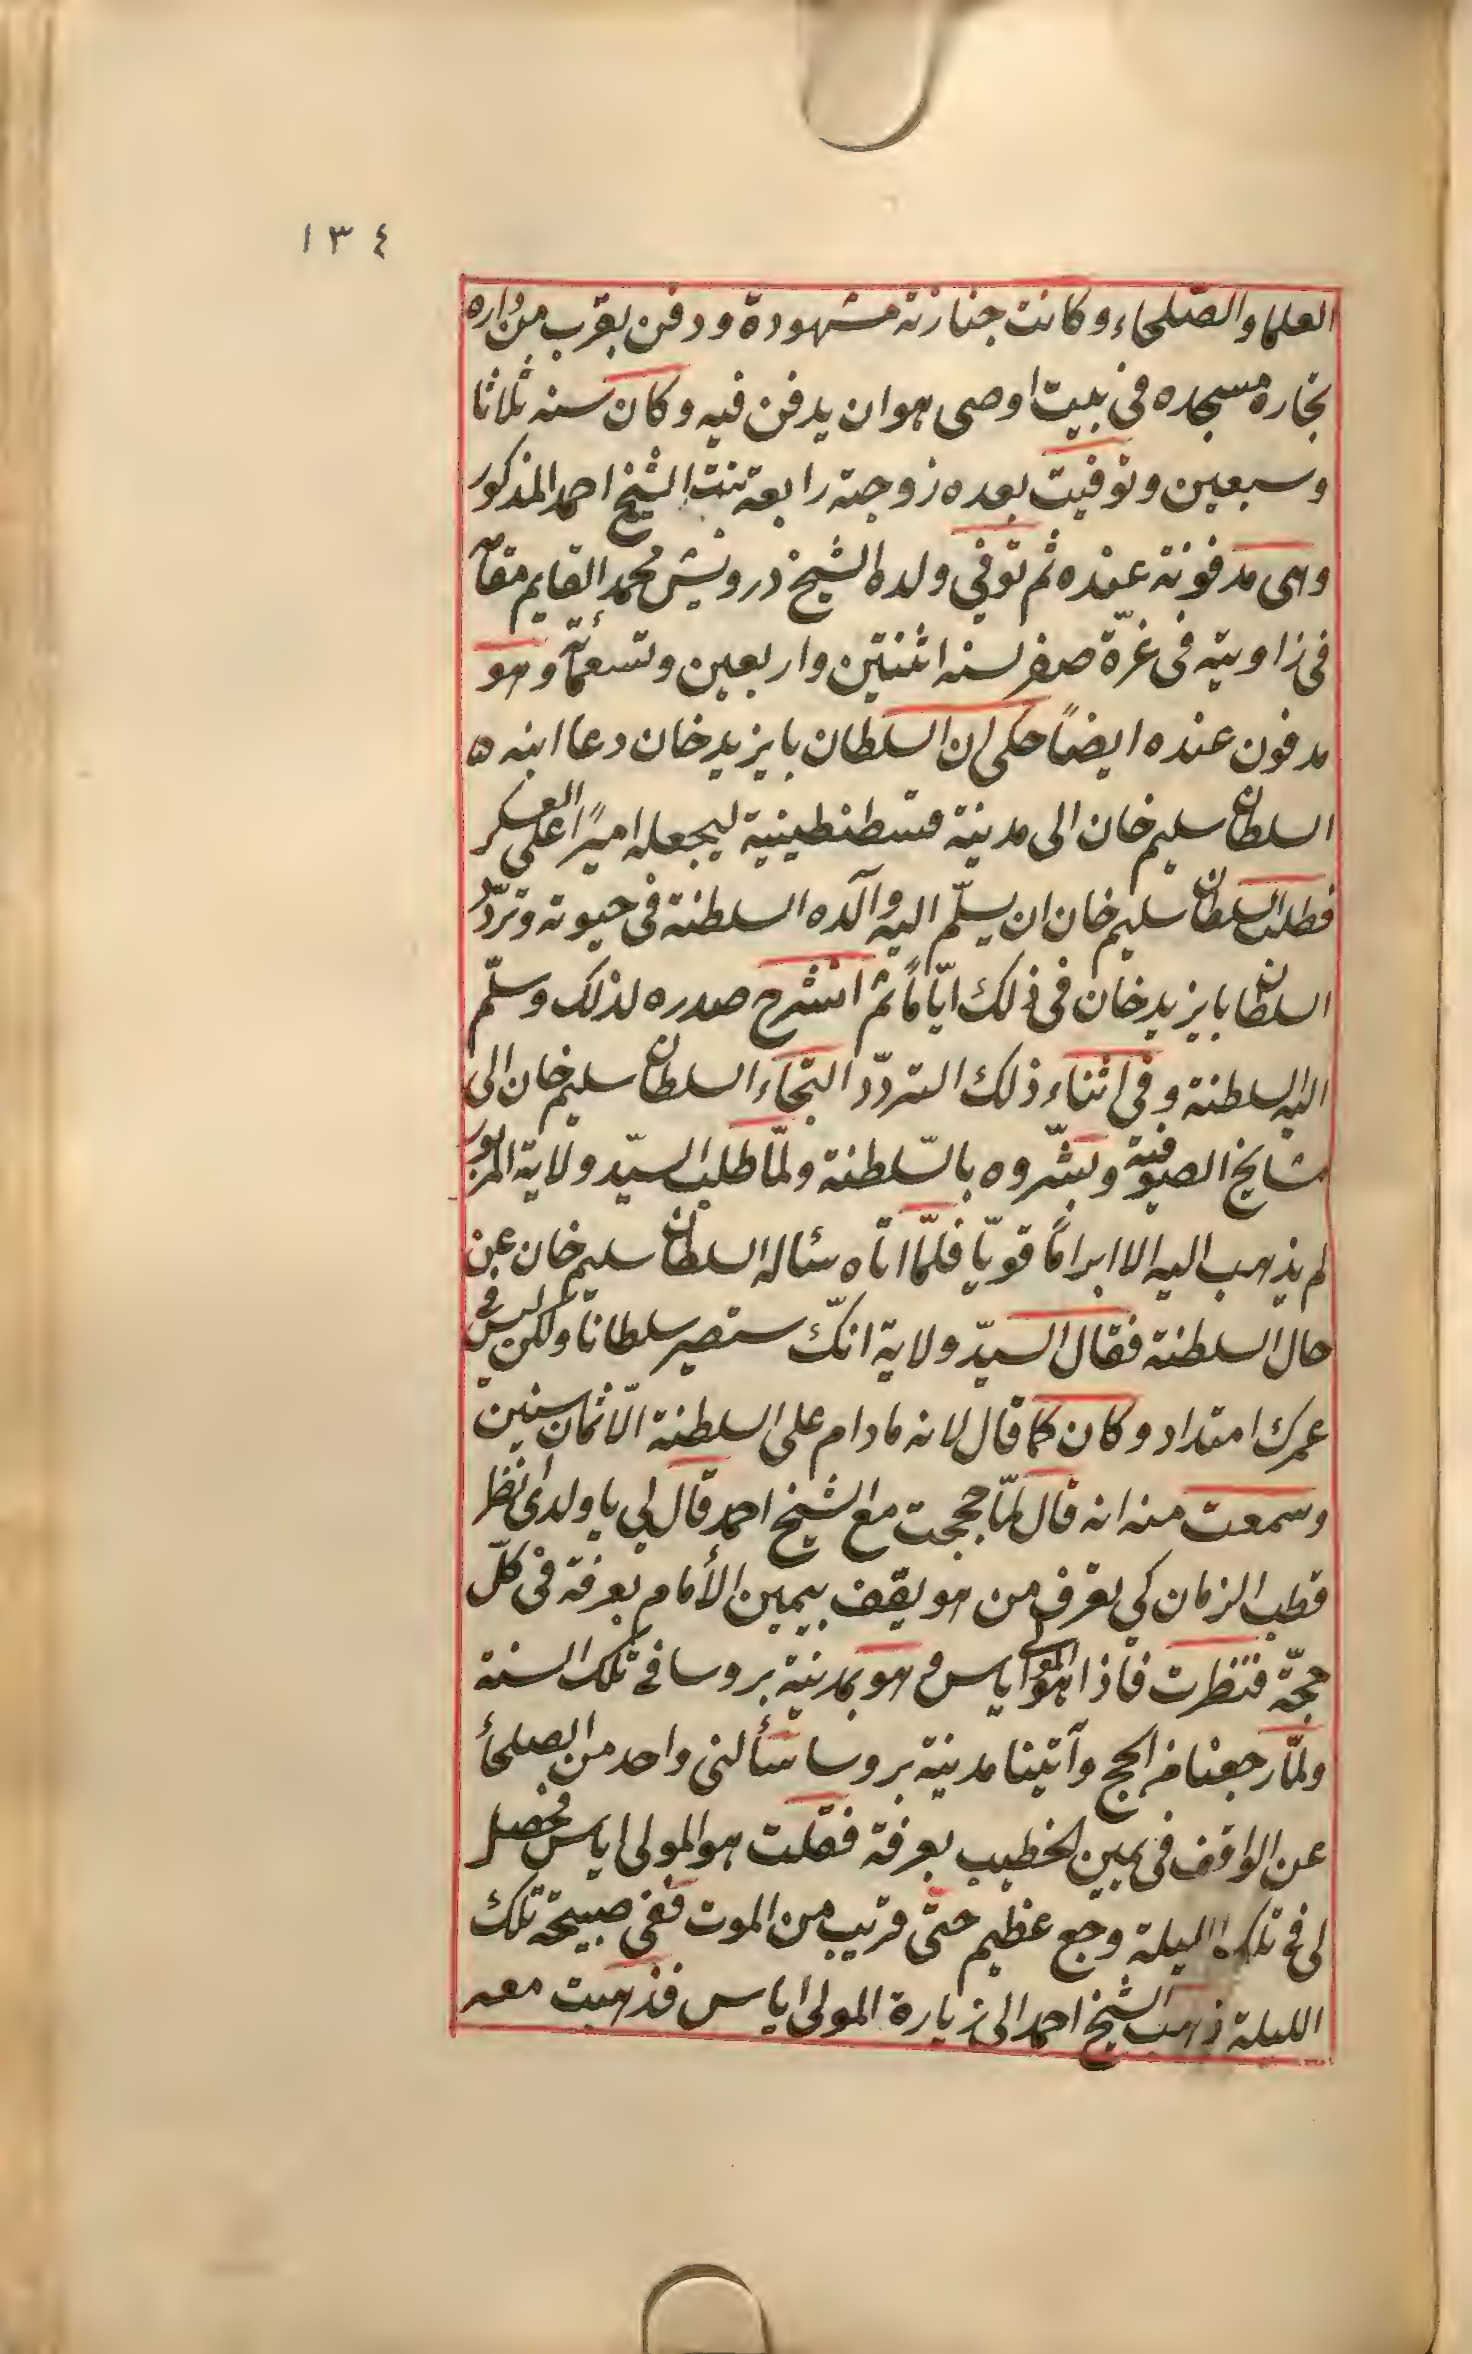 ١٣٤
العلما والصّلحاء وكانت جنازته مشهودة ودفن بقرب من داره
بخاره مسجده في بيت اوصى هو ان يدفن فيه وكان سنه ثلاثا
وسبعين وتوفيت بعده زوجته رابعة بنت الشيخ احمد المذكور
وهى مدفونة عنده ثم توفي ولده الشيخ درويش محمد القايم مقامه
في زاويته فى غرّة صفر لسنه اثنتين واربعين وتسعمائة وهو
مدفون عنده ايضاً حكى ان السلطان بايزيد خان دعا ابنه ه
السلطان سليم خان الى مدينة قسطنطينية ليجعله اميرًا على العسكر
فطلب السلطان سليم خان ان يسلّم اليه والده السلطنة فى حيوته وتردّد
السلطان بايزيد خان فى ذلك ايّامًا ثم انشرح صدره لذلك وسلّم
اليه السلطنة وفي اثناء ذلك التردّد التجاء السلطان سليم خان الى
مشايخ الصوفية وبشّروه بالسّلطنة ولمّا طلب السيّد ولاية المزبور
لم يذهب اليه الا ابرامًا قويّا فلمّا اتاه سئاله السلطان سليم خان عن
حال السلطنة فقال السيّد ولاية انّك ستصير سلطانا ولكن ليس في
عمرك امتداد وكان كما قال لانه ما دام على السلطنة الّا ثمان سنين
وسمعت منه انه قال لمّا حججت مع الشيخ احمد قال لي يا ولدى انظر
قطب الزمان كي تعرف من هو يقف بيمين الأمام بعرفة في كلّ
حجّة فنظرت فاذا هو المولى اياس وهو بمدينة بروسا في تلك السنة
ولمّا رجعنا من الحج وآتينا مدينة بروسا سألنى واحد من الصلحأ
عن الواقف في يمين الخطيب بعرفة فقلت هو المولى اياس فحصل
لى في تلك الليلة وجع عظيم حتى قريب من الموت ففي صبيحة تلك
الليلة ذهب الشيخ احمد الى زيارة المولى اياس فذهبت معه